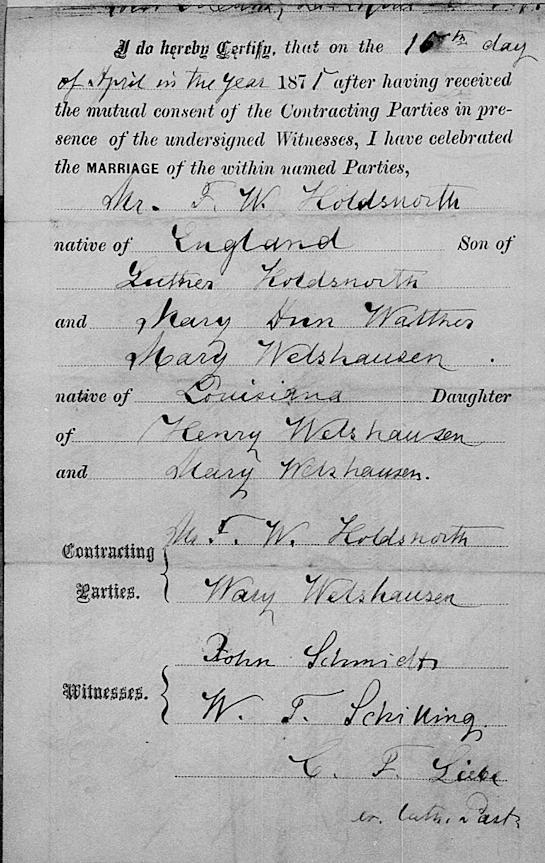 I do hereby Certify, that on the 15th day
of April in the year 1871 after having received
the mutual consent of the Contracting Parties in pre-
sence of the undersigned Witnesses, I have celebrated
the MARRIAGE of the within named Parties,
Mr. F. W. Holdsnorth
native of England Son of
Luther Holdsnorth
and Mary Walther
Mary Welshausen.
native of Louisiana Daughter
of Henry Welshausen
and Mary Welshausen.
Mr F. W. Holdsnorth
Contracting
Parties.
Mary Welshausen
John Schmidt
Witnesses.
W. T. Schilling.
C. F. Liebe
ev. luth. Past.